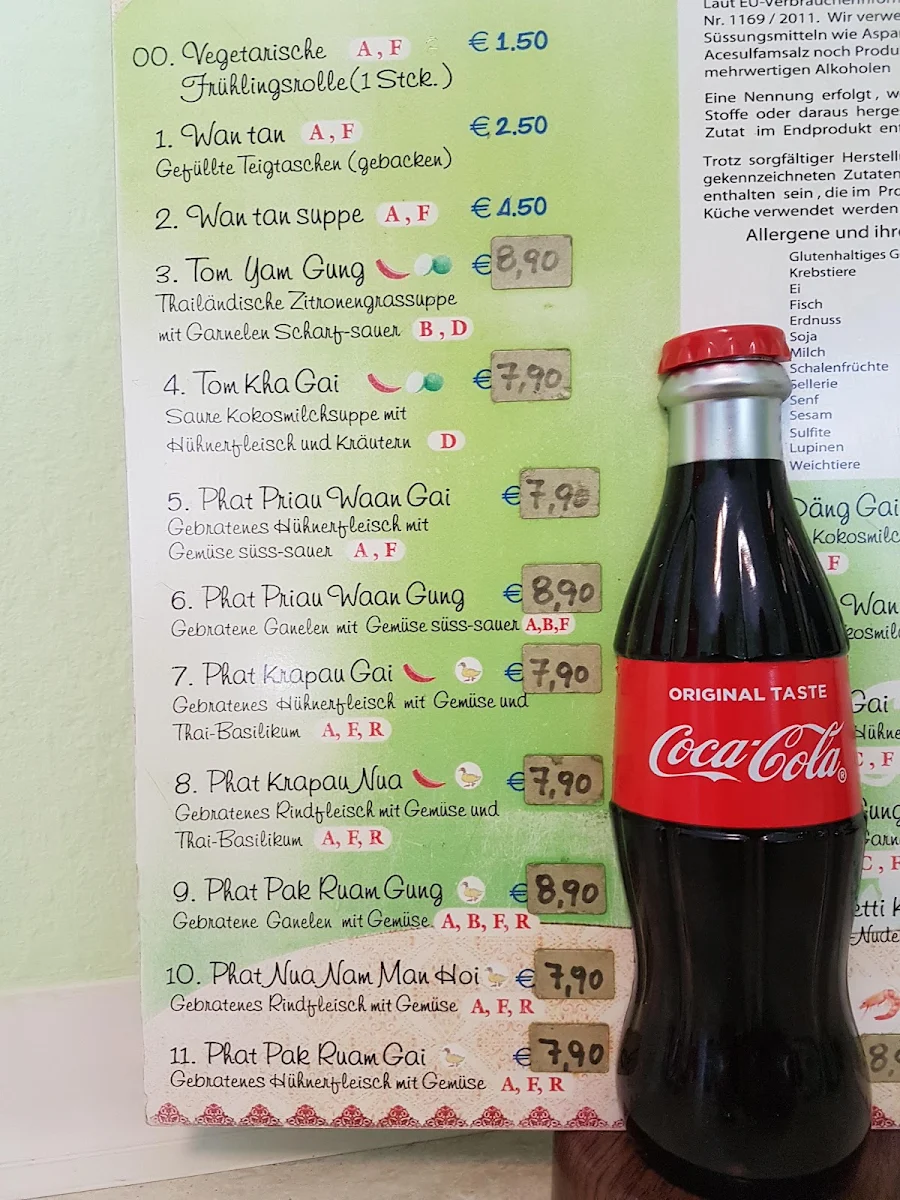 00. Vegetarische A, F € 1.50
Frühlingsrolle (1 Stck.)
1. Wan tan A, F € 2.50
Gefüllte Teigtaschen (gebacken)
2. Wan tan suppe A, F € 4.50
3. Tom Yam Gung € 8,90
Thailändische Zitronengrassuppe
mit Garnelen Scharf-sauer B, D
4. Tom Kha Gai € 7,90
Saure Kokosmilchsuppe mit
Hühnerfleisch und Kräutern D
5. Phat Priau Waan Gai € 7,90
Gebratenes Hühnerfleisch mit
Gemüse süss-sauer A, F
6. Phat Priau Waan Gung € 8,90
Gebratene Ganelen mit Gemüse süss-sauer A,B,F
7. Phat Krapau Gai € 7,90
Gebratenes Hühnerfleisch mit Gemüse und
Thai-Basilikum A, F, R
8. Phat Krapau Nua € 7,90
Gebratenes Rindfleisch mit Gemüse und
Thai-Basilikum A, F, R
9. Phat Pak Ruam Gung € 8,90
Gebratene Ganelen mit Gemüse A, B, F, R
10. Phat Nua Nam Man Hoi € 7,90
Gebratenes Rindfleisch mit Gemüse A, F, R
11. Phat Pak Ruam Gai € 7,90
Gebratenes Hühnerfleisch mit Gemüse A, F, R
Nr. 1169 / 2011. Wir verwe
Süssungsmitteln wie Aspa
Acesulfamsalz noch Produ
mehrwertigen Alkoholen
Eine Nennung erfolgt, w
Stoffe oder daraus herge
Zutat im Endprodukt ent
Trotz sorgfältiger Herstell
gekennzeichneten Zutaten
enthalten sein, die im Pro
Küche verwendet werden
Allergene und ihr
Glutenhaltiges G
Krebstiere
Ei
Fisch
Erdnuss
Soja
Milch
Schalenfrüchte
Sellerie
Senf
Sesam
Sulfite
Lupinen
Weichtiere
Däng Gai
Kokosmilc
F
Wan
kosmil
Gai
Hühne
C, F
Gung
Garn
C, F
etti K
-Nude
8,9
ORIGINAL TASTE
Coca-Cola®